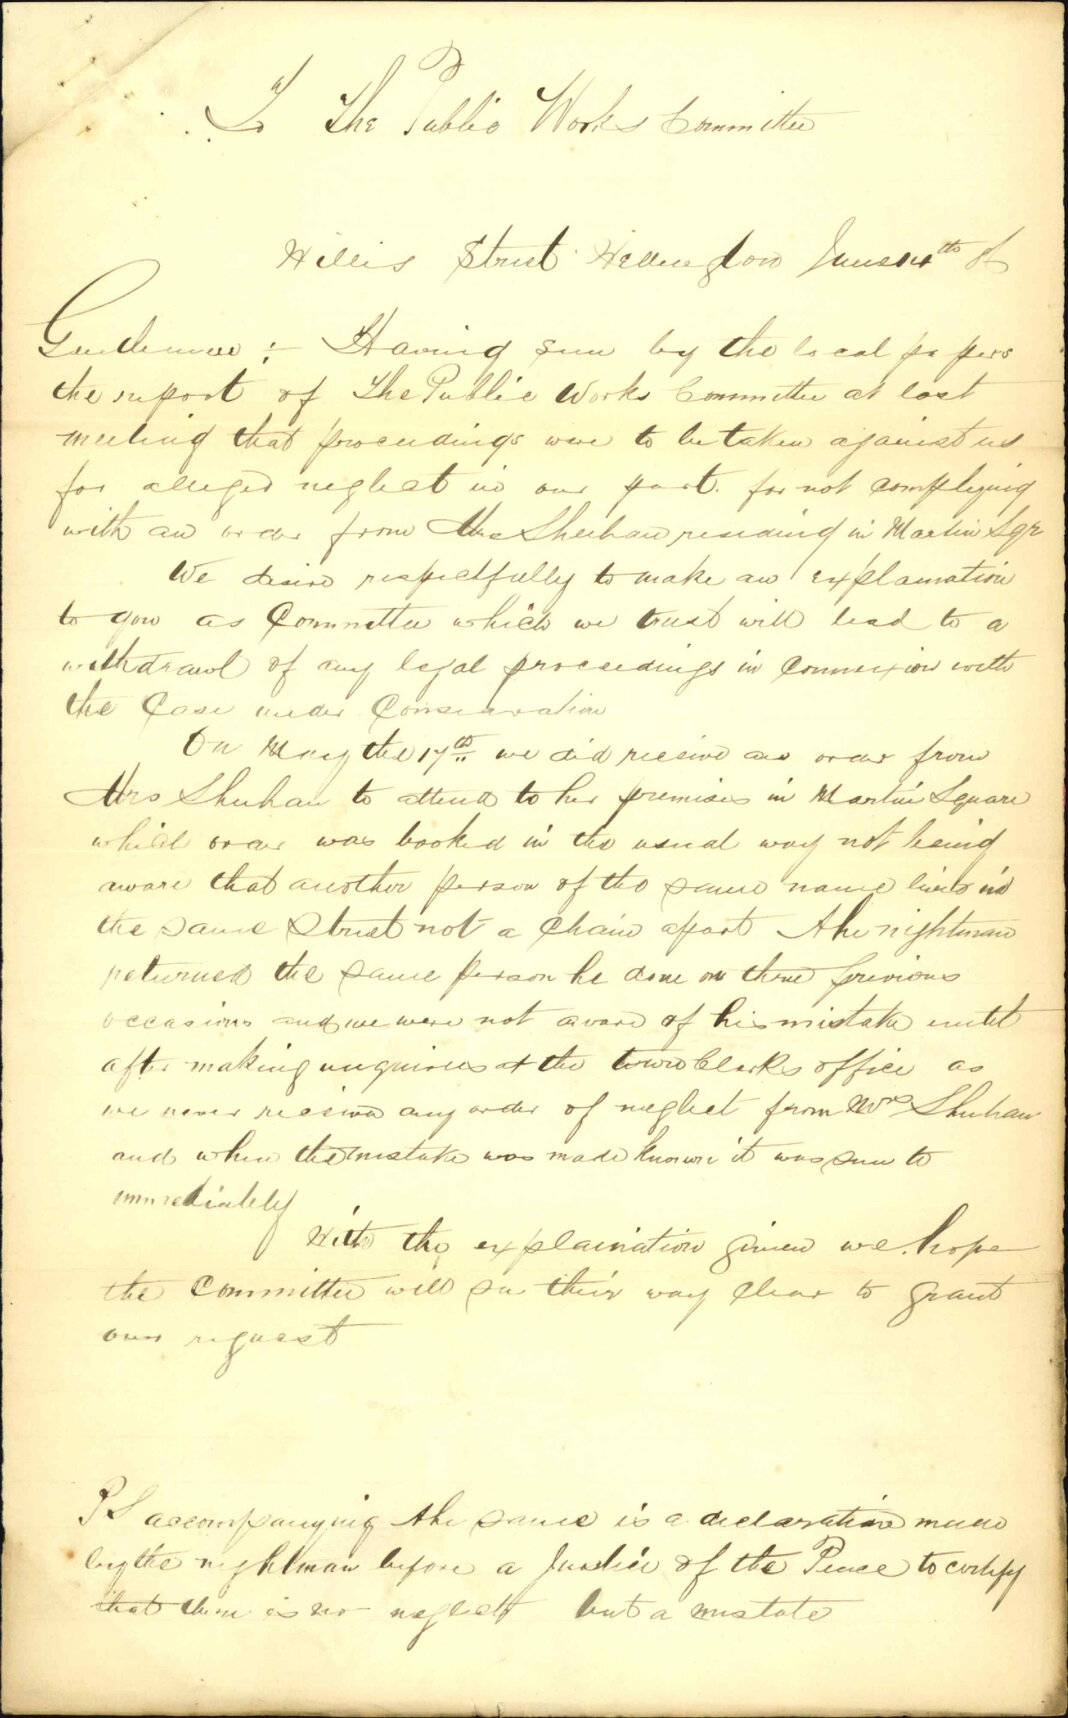 To The Public Works Committee
Willis Street Wellington June 14th
Gentlemen :- Having seen by the local papers
the report of The Public Works Committee at last
meeting that proceedings were to be taken against us
for alleged neglect in our part. for not complying
with an order from Mrs Sheehan residing in Martin Sqr
We desire respectfully to make an explaination
to you as Committee which we trust will lead to a
withdrawl of any legal proceedings in Connexion with
the Case under Conseration
On May the 17th we did receive an order from
Mrs Sheehan to attend to her premises in Martin Square
which order was booked in the usual way not being
aware that another person of the same name lives in
the same Street not a Chain apart the nightman
returned the same person he done on three previous
occasions and we were not aware of his mistake until
after making enquiries at the town Clerks office as
we never receive any order of neglect from Mrs Sheehan
and when the mistake was made known it was seen to
immediately
With the explaination given we hope
the Committee will see their way Clear to grant
our request
PS accompanying the same is a declaration made
by the nightman before a Justice of the Peace to certify
that there is no neglect but a mistake